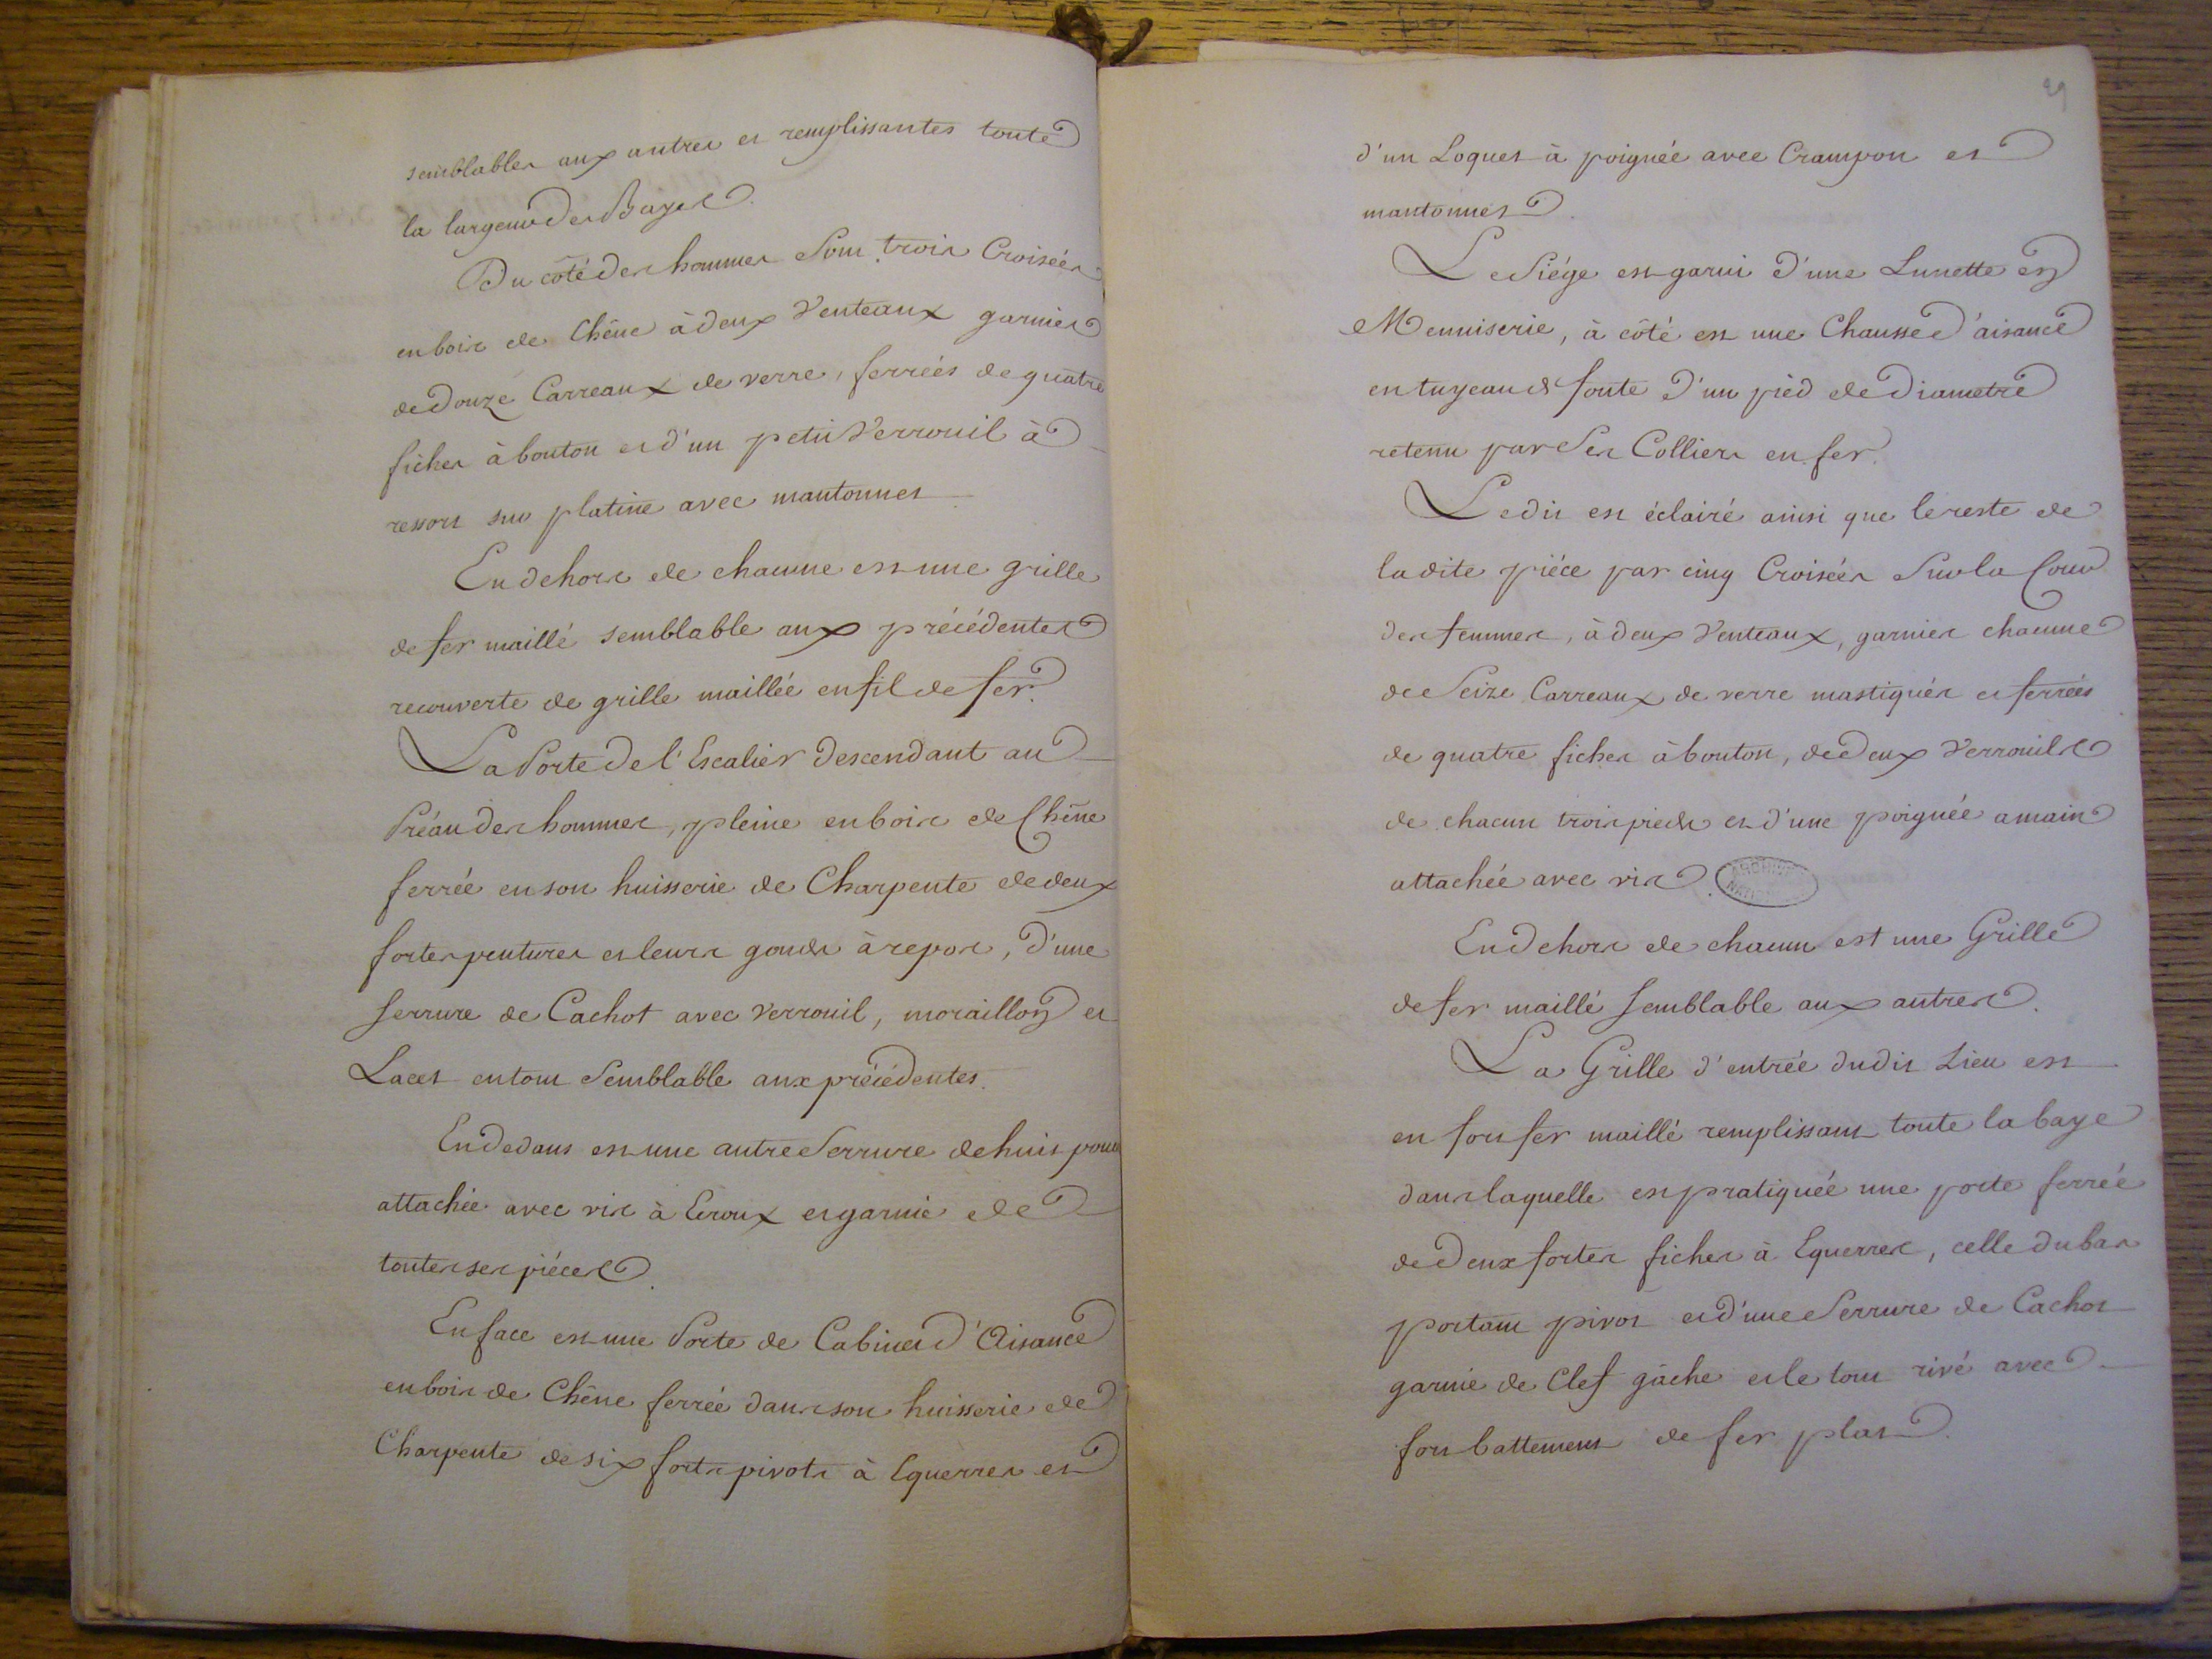 semblables aux autres et remplissantes toute
la largeur des Bayes.
Du côté des hommes sont trois Croisées
en bois de Chêne à deux Venteaux garnies
de Douze Carreaux de verre, ferrées de quatre
fiches à bouton et d'un petit Verrouil à
ressort sur platine avec mantonnet
En dehors de chacune est une grille
de fer maillé semblable aux précédentes
recouverte de grille maillée en fil de fer.
La Porte de l'Escalier descendant au
Préau des hommes, pleine en bois de Chêne
ferrée en son huisserie de Charpente de deux
fortes pentures et leurs gonds à repos, d'une
serrure de Cachot avec verrouil, moraillon et
Lacet en tout semblable aux précédentes.
En dedans est une autre Serrure de huit pouces
attachée avec vis à Ecroux et garnie de
toutes ses piéces.
En face est une Porte de Cabinet d'Aisance
en bois de Chêne ferrée dans son huisserie de
Charpente de six forts pivots à Equerres et
29
d'un Loquet à poignée avec Crampon et
mantonnet.
Le Siége est garni d'une Lunette en
Menuiserie, à côté est une Chausse d'aisance
en tuyeau de fonte d'un pied de Diametre
retenu par Ses Colliers en fer.
Ledit est éclairé ainsi que le reste de
ladite piéce par cinq Croisées Sur la Cour
des femmes, à deux Venteaux, garnies chacune
de Seize Carreaux de verre mastiqués et ferrées
de quatre fiches à bouton, de Deux Verrouils
de chacun trois pieds et d'une poignée a main
attachée avec vis.
ARCHIVES
NATIONALES
En dehors de chacun est une Grille
de fer maillé semblable aux autres.
La Grille d'entrée dudit Lieu est
en fort fer maillé remplissant toute la baye
dans laquelle est pratiquée une porte ferrée
de Deux fortes fiches à Equerres, celle du bas
portant pivot et d'une Serrure de Cachot
garnie de Clef gâche et le tout rivé avec
fort battement de fer plat.